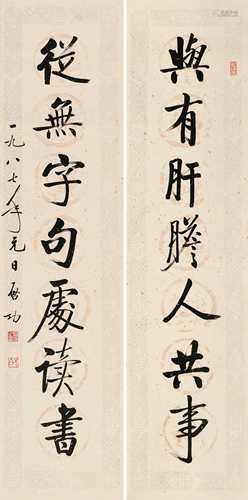 與有肝膽人共事
從無字句處读書
一九八七年元日启功